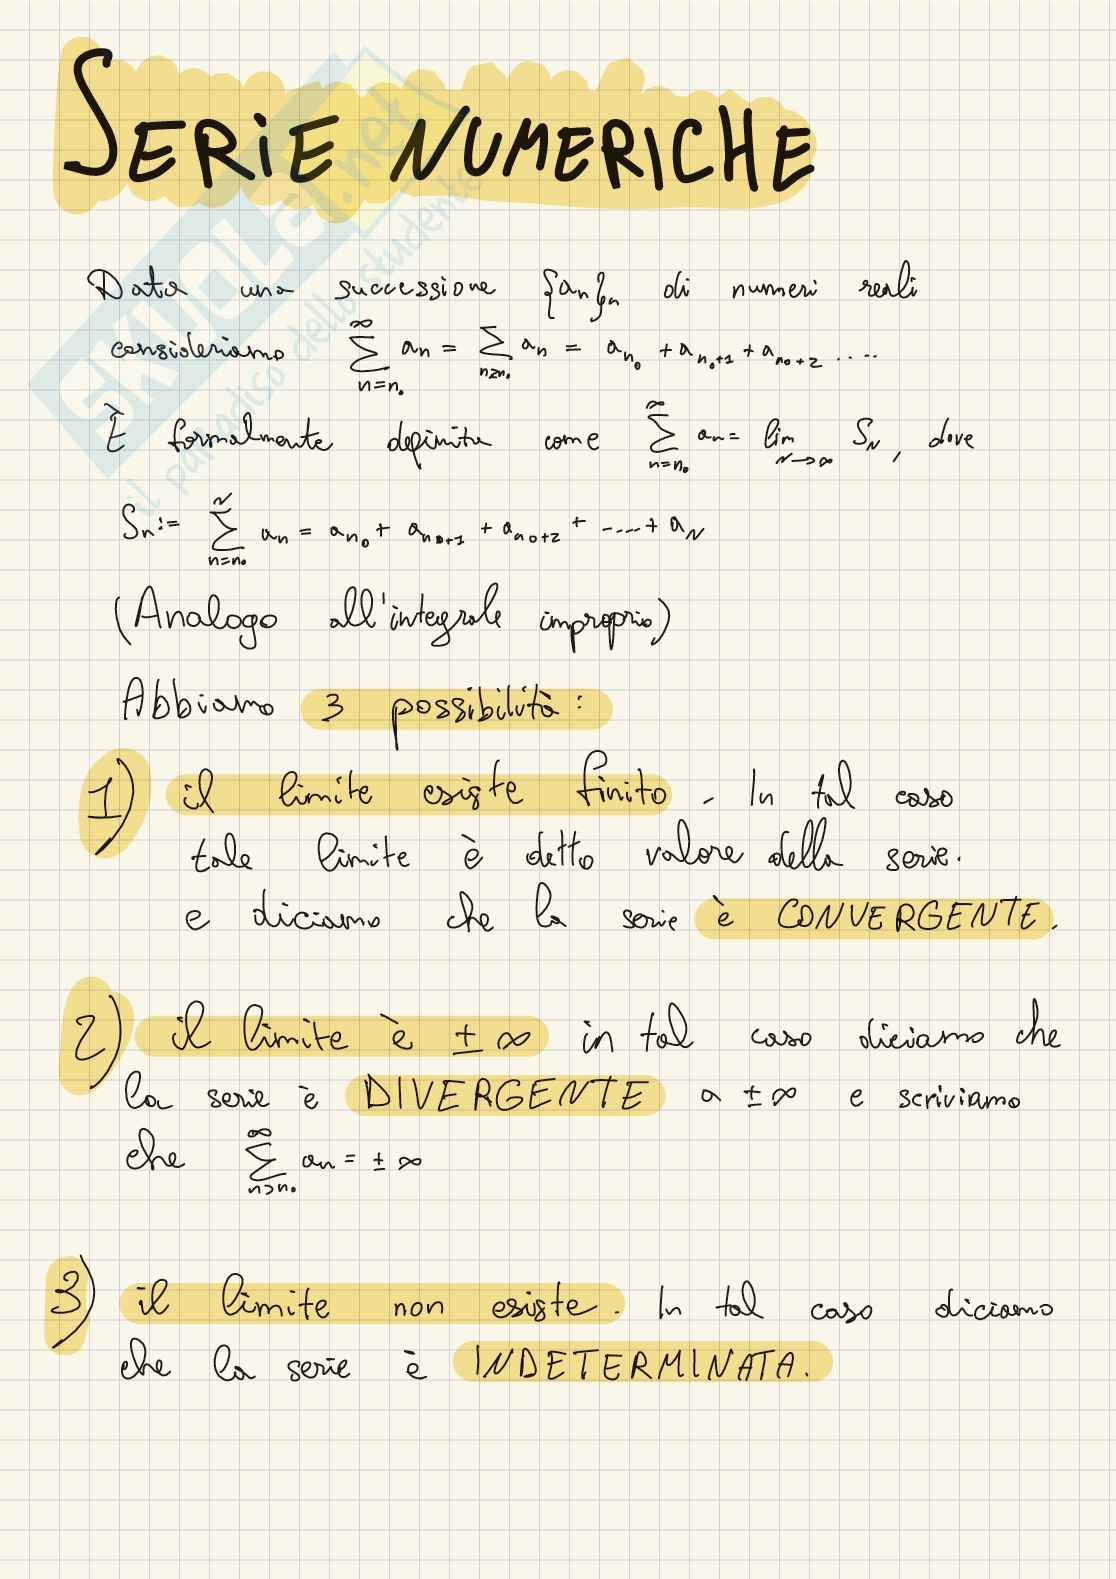 SERIE NUMERICHE
Data una successione {aₙ}ₙ di numeri reali
consideriamo ∑_{n=n₀}^{∞} aₙ = ∑_{n≥n₀} aₙ = a_{n₀} + a_{n₀+1} + a_{n₀+2} ....
È formalmente definita come ∑_{n=n₀}^{∞} aₙ = lim_{N→∞} S_N, dove
Sₙ := ∑_{n=n₀}^{N} aₙ = a_{n₀} + a_{n₀+1} + a_{n₀+2} + ..... + a_N
(Analogo all'integrale improprio)
Abbiamo 3 possibilità:
1) il limite esiste finito. In tal caso
tale limite è detto valore della serie.
e diciamo che la serie è CONVERGENTE.
2) il limite è ± ∞ in tal caso diciamo che
la serie è DIVERGENTE a ±∞ e scriviamo
che ∑_{n>n₀}^{∞} aₙ = ± ∞
3) il limite non esiste. In tal caso diciamo
che la serie è INDETERMINATA.
SKUOLA.net
il paradiso dello studente